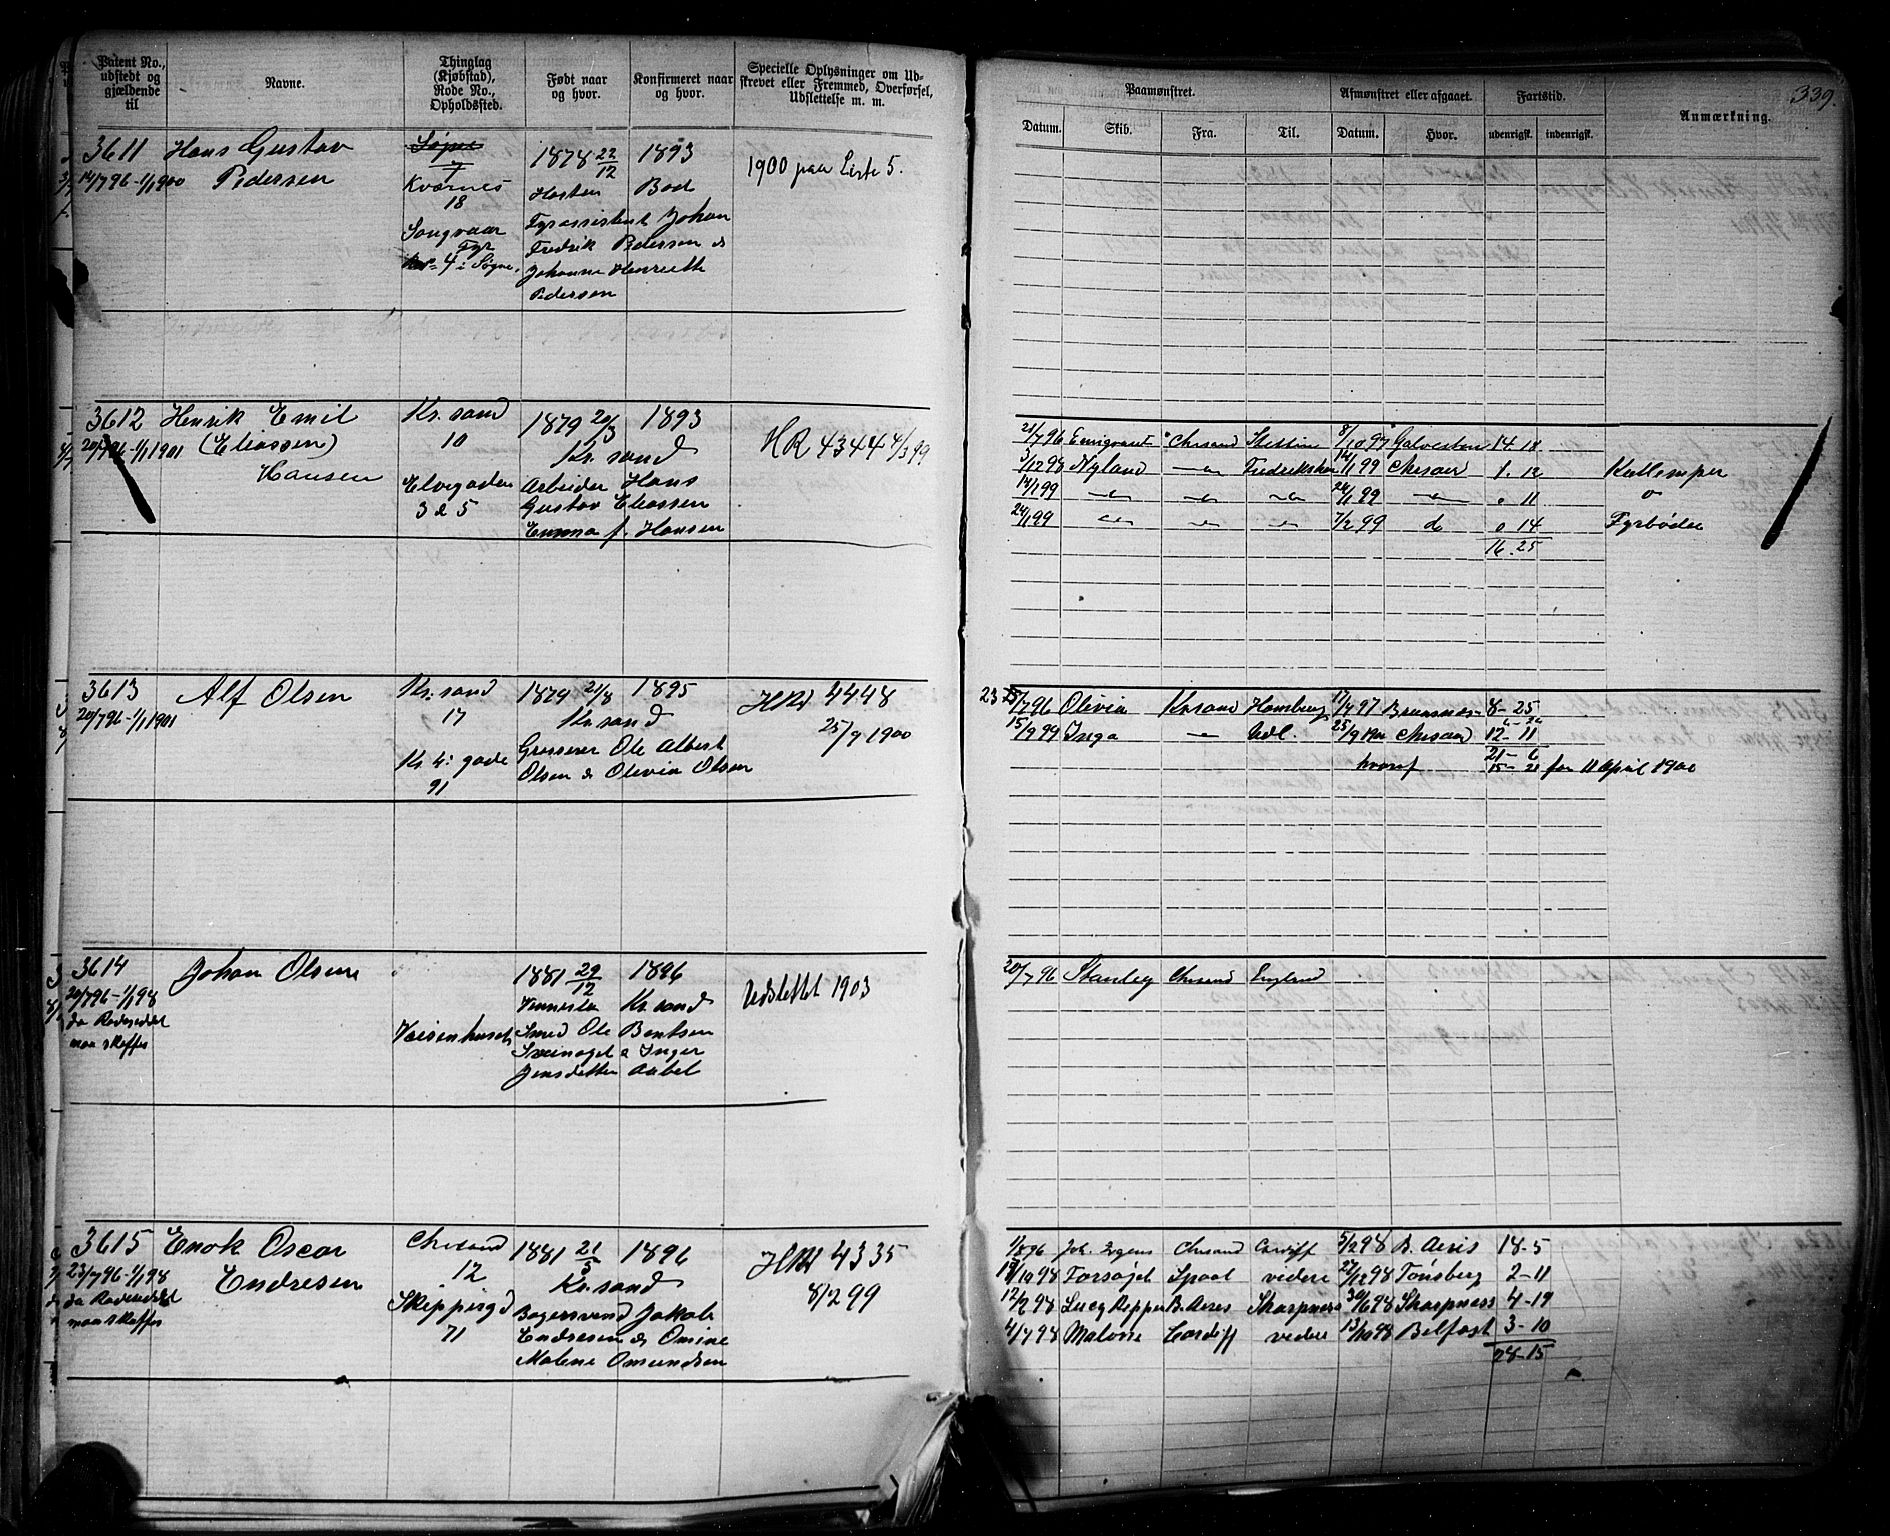 Patent No., udstedt og gjældende til
Navne.
Thinglag (Kjøbstad), Rode No., Opholdssted.
Født naar og hvor.
Konfirmeret naar og hvor.
Specielle Oplysninger om Udskrevet eller Fremmed, Overførsel, Udslettelse m. m.
Paamønstret.
Afmønstret eller afgaaet.
Fartstid.
Anmærkning.
339.
Datum.
Skib.
Fra.
Til.
Datum.
Hvor.
udenrigsk.
indenrigsk.
3611
14/7 96-1/1 1900
Hans Gustav
Pedersen
Søgne
7
Kvarnes
18
Songvaar
Fyr
No 4 i Søgne.
1878 22/12
1893
Hosten
Bod
Fyrassistent Johan
Fredrik Pedersen &
Johanne Henriette
Pedersen
1900 paa Liste 5.
3612
20/7 96-1/1 1901
Henrik Emil
(Eliassen)
Hansen
Kr. sand
10
Elvegaden
3 & 5
1879 20/3
1893
Kr. sand
Arbeider Hans
Gustav Eliassen
Emma f. Hansen
HR 4344 4/3 99
21/7 96 Chrsand Stettin 8/10 97 Galveston 14. 18
3/12 98 Nyland Fredrikshavn 14/1 99 1. 12 Kullemper
14/1 99 24/1 99 " 11 "
24/1 99 7/2 99 d " 14 Fyrbøder
16. 25
3613
20/7 96-1/1 1901
Alf Olsen
Kr. sand
17
Kr. 4: gade
91
1879 21/8
1895
Kr. sand
Grosserer Ole Albert
Olsen & Olivia Olsen
HRI 4448
25/9 1900
23/7 96 Olivia Krsand Hamburg 17/4 97 8-25
15/9 99 Inga Udl. 25/9 12-11
21- 6
hvoraf 15- 21 før 11 April 1900
3614
20/7 96-1/1 98
da Rodeseddel
maa skaffes
Johan Olsen
Veisenhuset
1881 29/12
1896
Vennesla
Kr. sand
Smed Ole Bentsen
Sveinaget & Inger
Jensdatter Aabel
Udslettet 1903
20/7 96 Stanley Chrsand England
3615
23/7 96-1/1 98
da Rodeseddel
maa skaffes
Enok Oscar
Endresen
Chrsand
12
Skippergd
71
1881 21/5
1896
Kr. sand
Bagersvend Jakob
Endresen & Omine
Malene Omundsen
HRI 4335
8/2 99
1/8 96 Joh. Irgens Chrsand Cardiff 5/2 98 B. Aeris 18-5
17/10 98 Forsøget Spool videre 27/12 98 Tönsberg 2-11
12/2 98 Lucy Pepper B. Aeris Sharpness 30/6 98 Sharpness 4-19
4/7 98 Malone Cardiff videre 13/10 98 Belfast 3-10
28-15